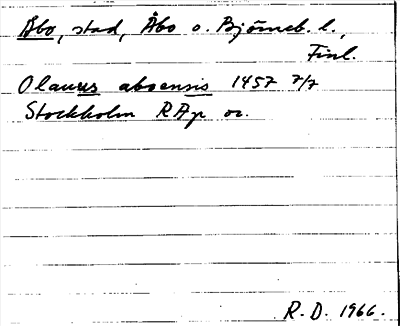 Åbo, stad, Åbo o. Björneb. l.,
Finl.
Olauus aboensis 1457 7/7
Stockholm RAp or.
R.D. 1966.